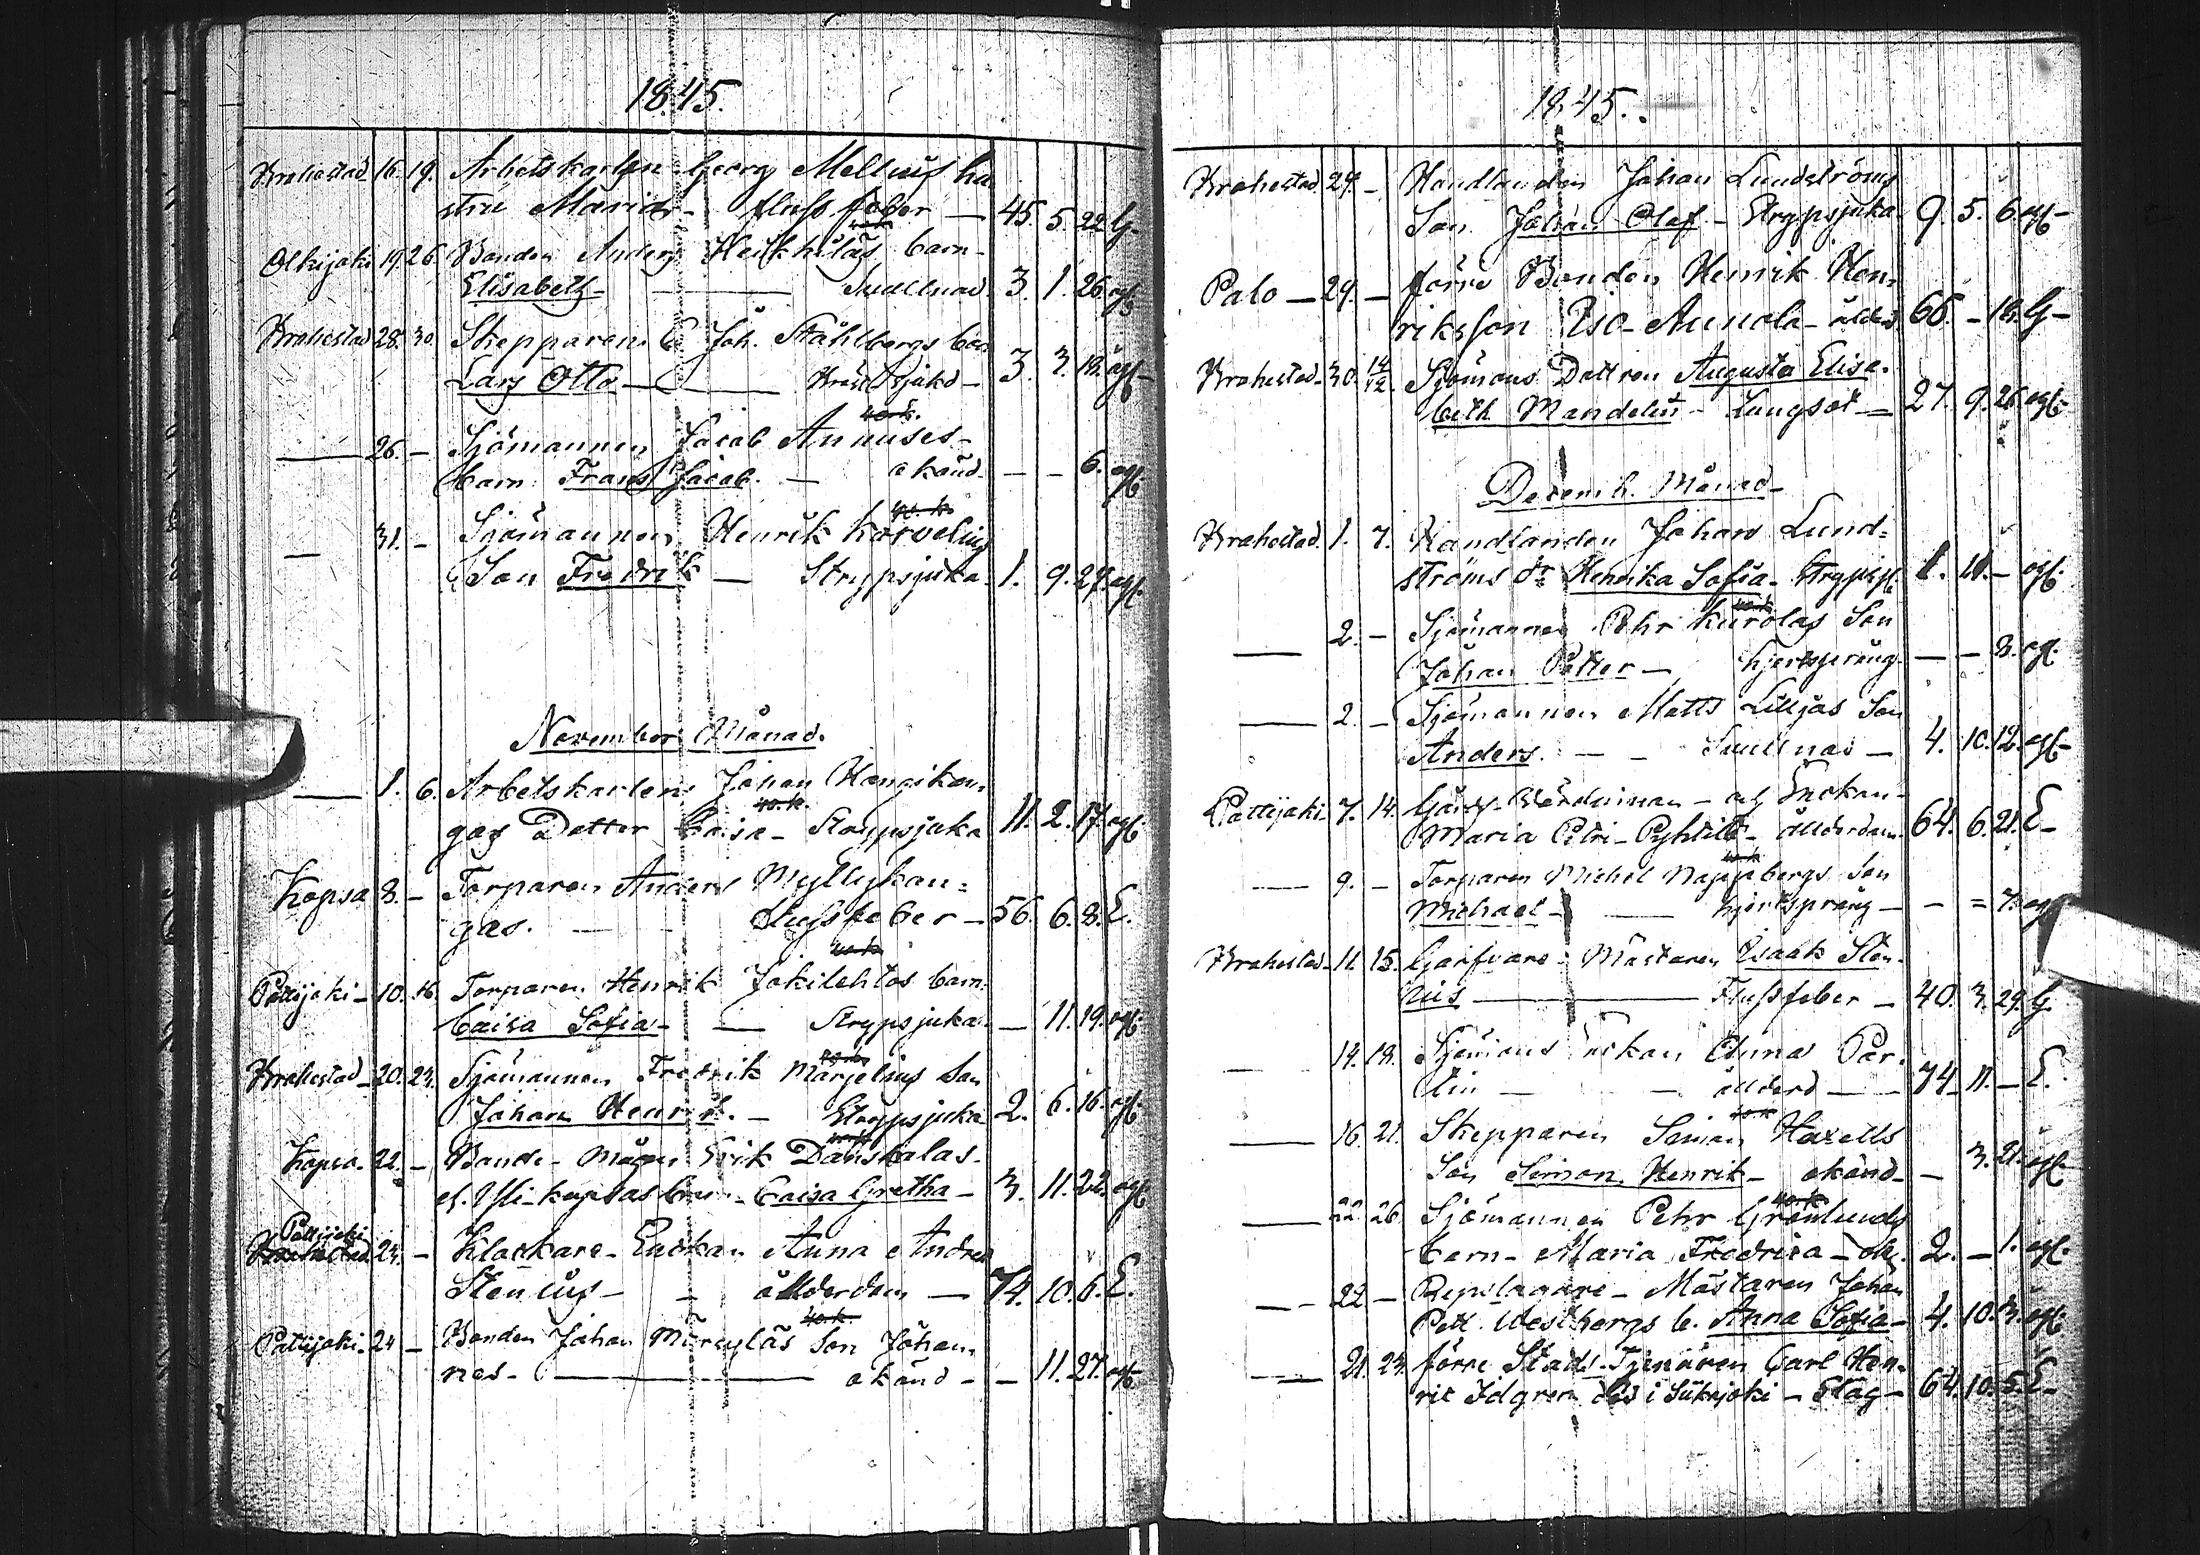 1845.
Brahestad 16. 19. Arbetskarlen Georg Mellius hu
stru Maria - flussfeber - 45. 5. 22 G.
Olkijoki 19 26. Bonden Anders Heikkiläs barn
Elisabeth - Svullnad 3. 1. 26 ogf
Brahestad 28. 30. Skepparen C Joh. Ståhlbergs barn
Lars Otto - 3. 3. 18. ogf
— 26. - Sjömannen Jacob Annuses
barn Frans Jacob. - okänd - - 6. ogf
— 31. - Sjömannen Henrik Korvelius
Son Fredrik - Strypsjuka. 1. 9. 27. ogf.
November Månad.
— 1. 6. Arbetskarlen Johan Hangikan,
gas Dotter Caisa - Strypsjuka 11. 2. 17. ogf
Kopsa 8. - Torparen Anders Myllykan=
gas. - Flussfeber - 56. 6. 8. E.
Pattijoki - 10. 16. Torparen Henrik Jokilehtos barn
Caisa Sofia - Strypsjuka - 11. 19. ogf
Brahestad - 20. 23. Sjömannen Fredrik Marjelius Son
Johan Henrik. - Strypsjuka 2. 6. 16. ogf
Kopsa. 22. - Bonde - Mågen Erik Danskalas
el. Yli-kopsas barn - Caisa Gretha - 3. 11. 22. ogf
Pattijoki
Brahestad 23. - Klockare - Enckan Anna Andrea
Stenius - ålderdom - 74. 10. 6. E.
Pattijoki. 24 - Bonden Johan Mörylãs Son Johan
nes - okänd - - 11. 27. ogf
1845.
Brahestad 29. - Handlanden Johan Lundströms
Son Johan Olof - Strypsjuka 9. 5. 6. ogf -
Palo - 29. - förre Bonden Henrik Hen,
riksson Iso-Aunola - ålderd. 66. - 16. G -
Brahestad - 30. 14/12. Sjömans Dottren Augusta Elisa.
beth Mandelin - Lungsot - 27. 9. 26. ogf -
Decemb. Månad -
Brahestad. 1. 7. Handlanden Johan Lund=
ströms dr Henrika Sofia - Strypsj. 1. 11. - ogf.
— 2. - Sjömannen Pehr Kurolas Son
Johan Petter - hjertspräng. - - 8. ogf.
— 2. - Sjömannen Matts Liljas Son
Anders. - - Svullnad - 4. 10. 12. ogf -
Pattijoki. 7. 14. Enckan -
Maria Petri - Pyhtilä - ålderdom. 64. 6. 21. E -
— 9. - Torparen Michel Nappabergs Son
Michael - hjertspräng - - = 7. ogf
Brahestad - 11. 15. Garfvare - Mästaren Isaak Ste
nius - Flussfeber - 40. 3. 29. G.
— 14. 18. Sjömans Enkan Anna Pär
lin - - ålderd - 74. 11. - E.
— 16. 21. Skepparen Simon Haxells
Son Simon Henrik - okänd - - 3. 21. ogf.
— 22. 26. Sjömannen Pehr Grönlunds
barn - Maria Fredrica - ok. 2. - 1. ogf.
— 22 - Repslagare - Mästaren Johan
Pett. Westbergs b. Anna Sofia - 4. 10. 3. ogf.
— 21. 23. förre Stads-Tjenaren Carl Hen,
ric Idgren död i Siikajoki - Slag - 64. 10. 5. E -